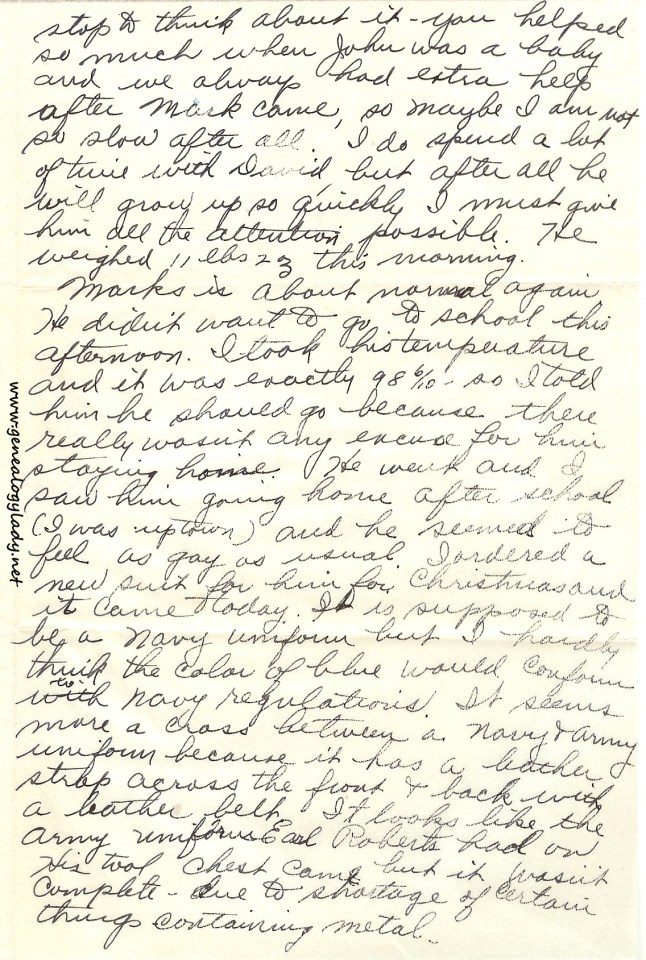 stop to think about it - you helped
so much when John was a baby
and we always had extra help
after Mark came, so maybe I am not
so slow after all. I do spend a lot
of time with David, but after all he
will grow up so quickly I must give
him all the attention possible. He
weighed 11 lbs 23 this morning.
Marks is about normal again.
He didn't want to go to school this
afternoon. I took his temperature
and it was exactly 98 6/10 - so I told
him he should go because there
really wasn't any excuse for him
staying home. He went and I
saw him going home after school
(I was uptown) and he seemed to
feel as gay as usual. I ordered a
new suit for him for Christmas and
it came today. It is supposed to
be a Navy uniform but I hardly
think the color of blue would conform
to
with navy regulations. It seems
more a cross between a Navy & Army
uniform because it has a leather
strap across the front & back with
a leather belt. It looks like the
Army uniform Earl Roberts had on
His tool chest came but it wasn't
complete - due to shortage of certain
things containing metal.
www.genealogylady.net